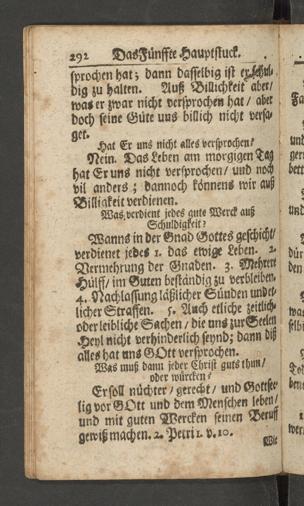 292 Das Fünffte Hauptstuck.
sprochen hat; dann dasselbig ist er schul-
dig zu halten. Auß Billichkeit aber/
was er zwar nicht versprochen hat / aber
doch seine Güte uns billich nicht versa-
get.
Hat Er uns nicht alles versprochen/
Nein. Das Leben am morgigen Tag
hat Er uns nicht versprochen/ und noch
vil anders; dannoch können s wir auß
Billigkeit verdienen.
Was verdient jedes gute Werck auß
Schuldigkeit?
Wanns in der Gnad Gottes geschicht/
verdienet jedes 1. das ewige Leben. 2.
Vermehrung der Gnaden. 3. Mehrere
Hülff/ im Guten beständig zu verbleiben.
4. Nachlassung läßlicher Sünden und et-
licher Straffen. 5. Auch etliche zeitlich-
oder leibliche Sachen/ die uns zur Seelen
Heyl nicht verhinderlich seynd; dann diß
alles hat uns GOtt versprochen.
Was muß dann jeder Christ guts thun/
oder würcken/
Er soll nüchter/ gerecht/ und Gottsee-
lig vor GOtt und dem Menschen leben/
und mit guten Wercken seinen Beruff
gewiß machen. 2. Petri 1. v. 10.
Wie